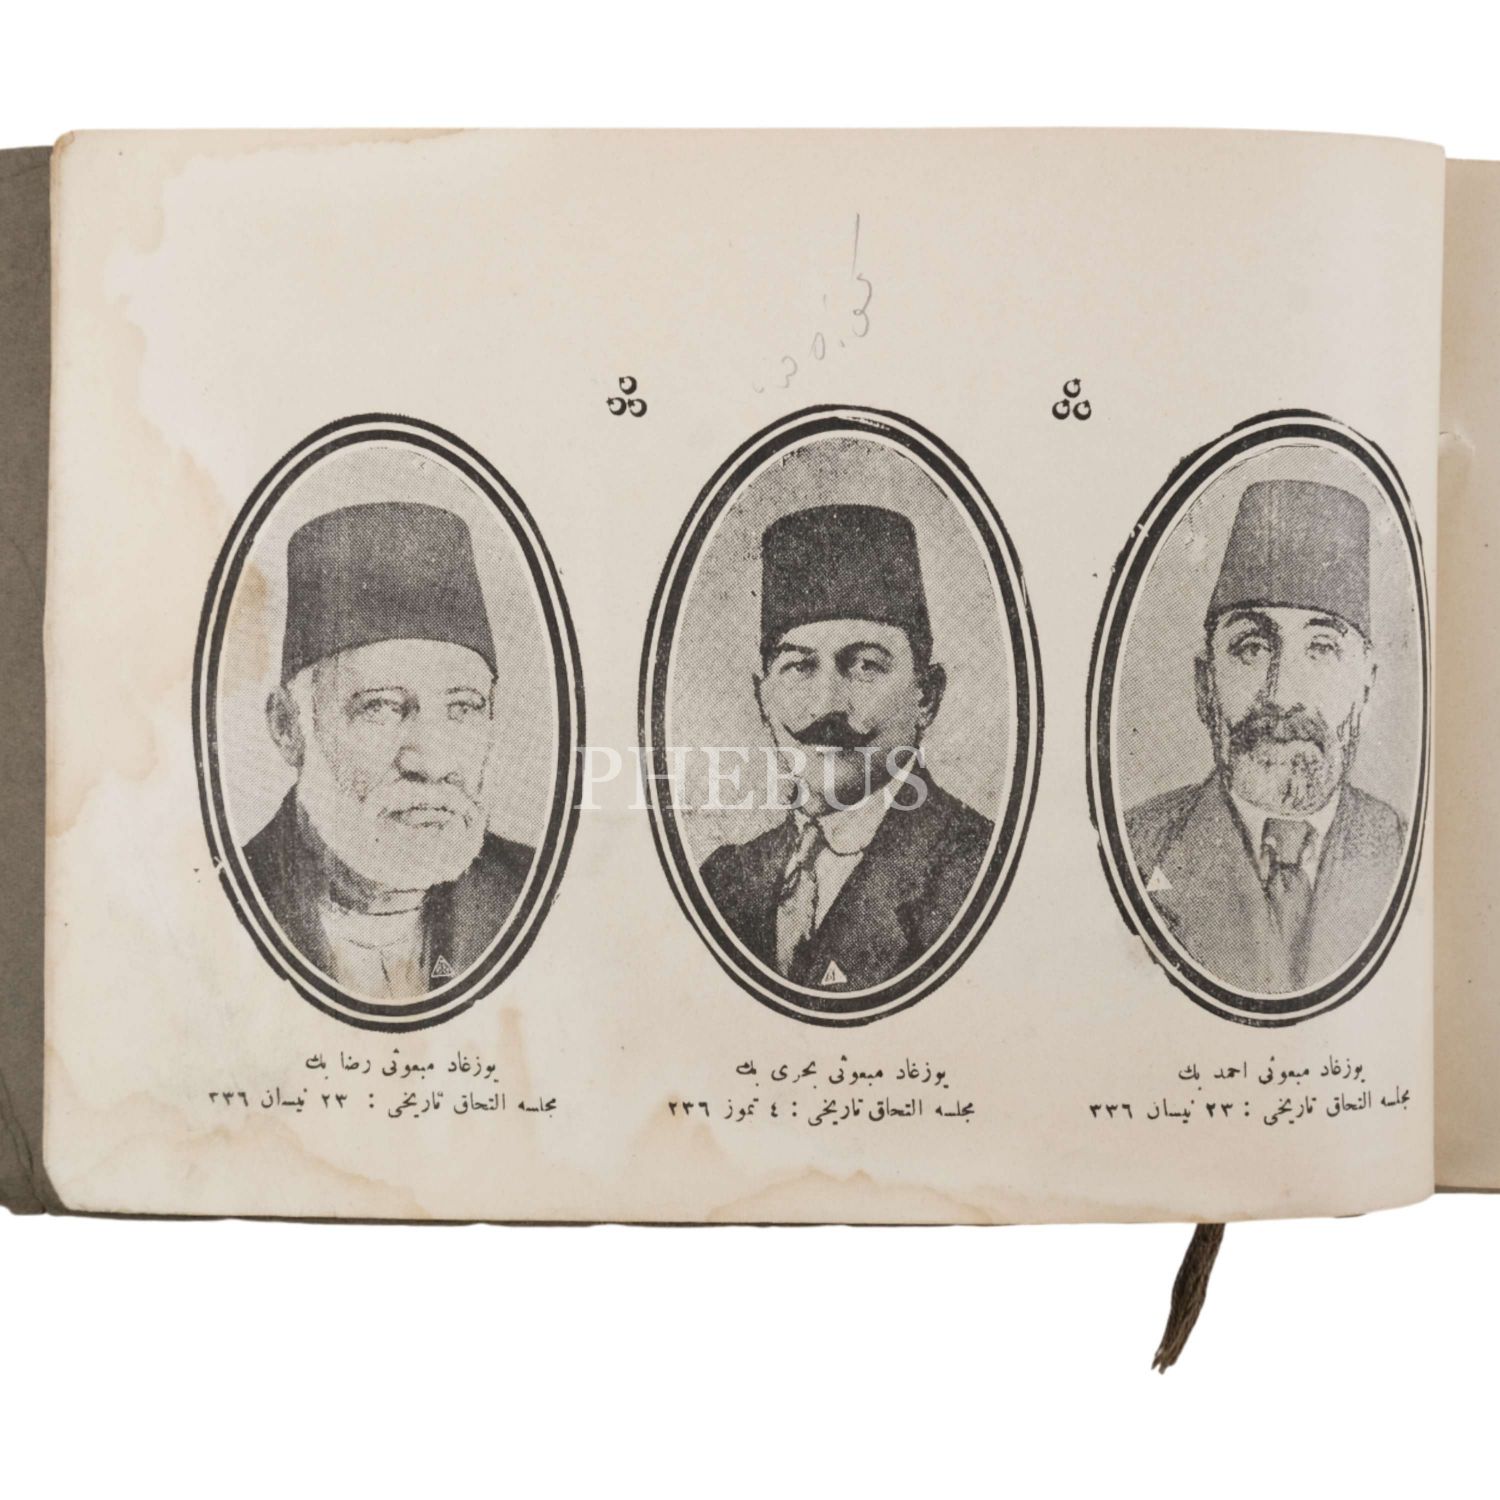 يوزغاد مبعوثى احمد بك
مجلسه التحاق تاريخى : ٢٣ نيسان ٣٣٦
يوزغاد مبعوثى بحرى بك
مجلسه التحاق تاريخى : ٤ تموز ٣٣٦
يوزغاد مبعوثى رضا بك
مجلسه التحاق تاريخى : ٢٣ نيسان ٣٣٦
PHEBUS